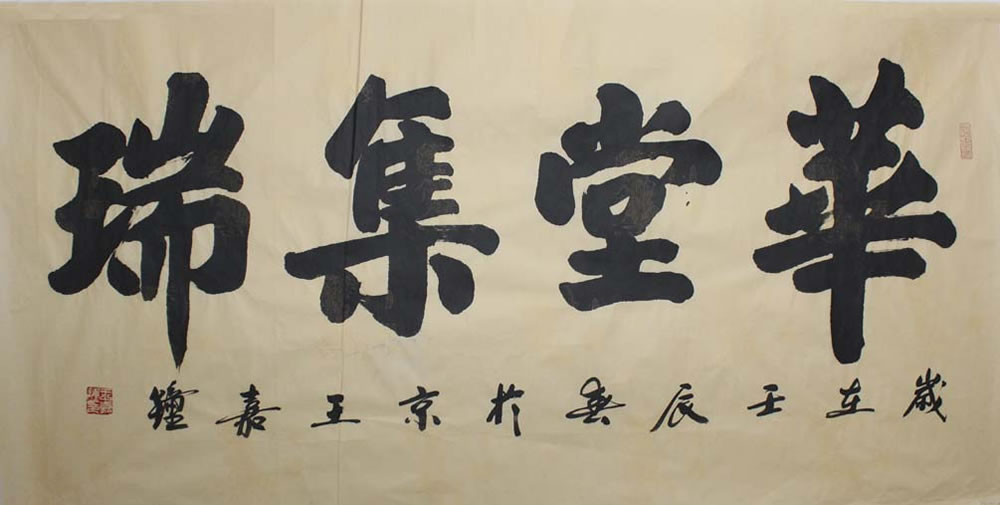 華堂集瑞
歲在壬辰春於京王嘉